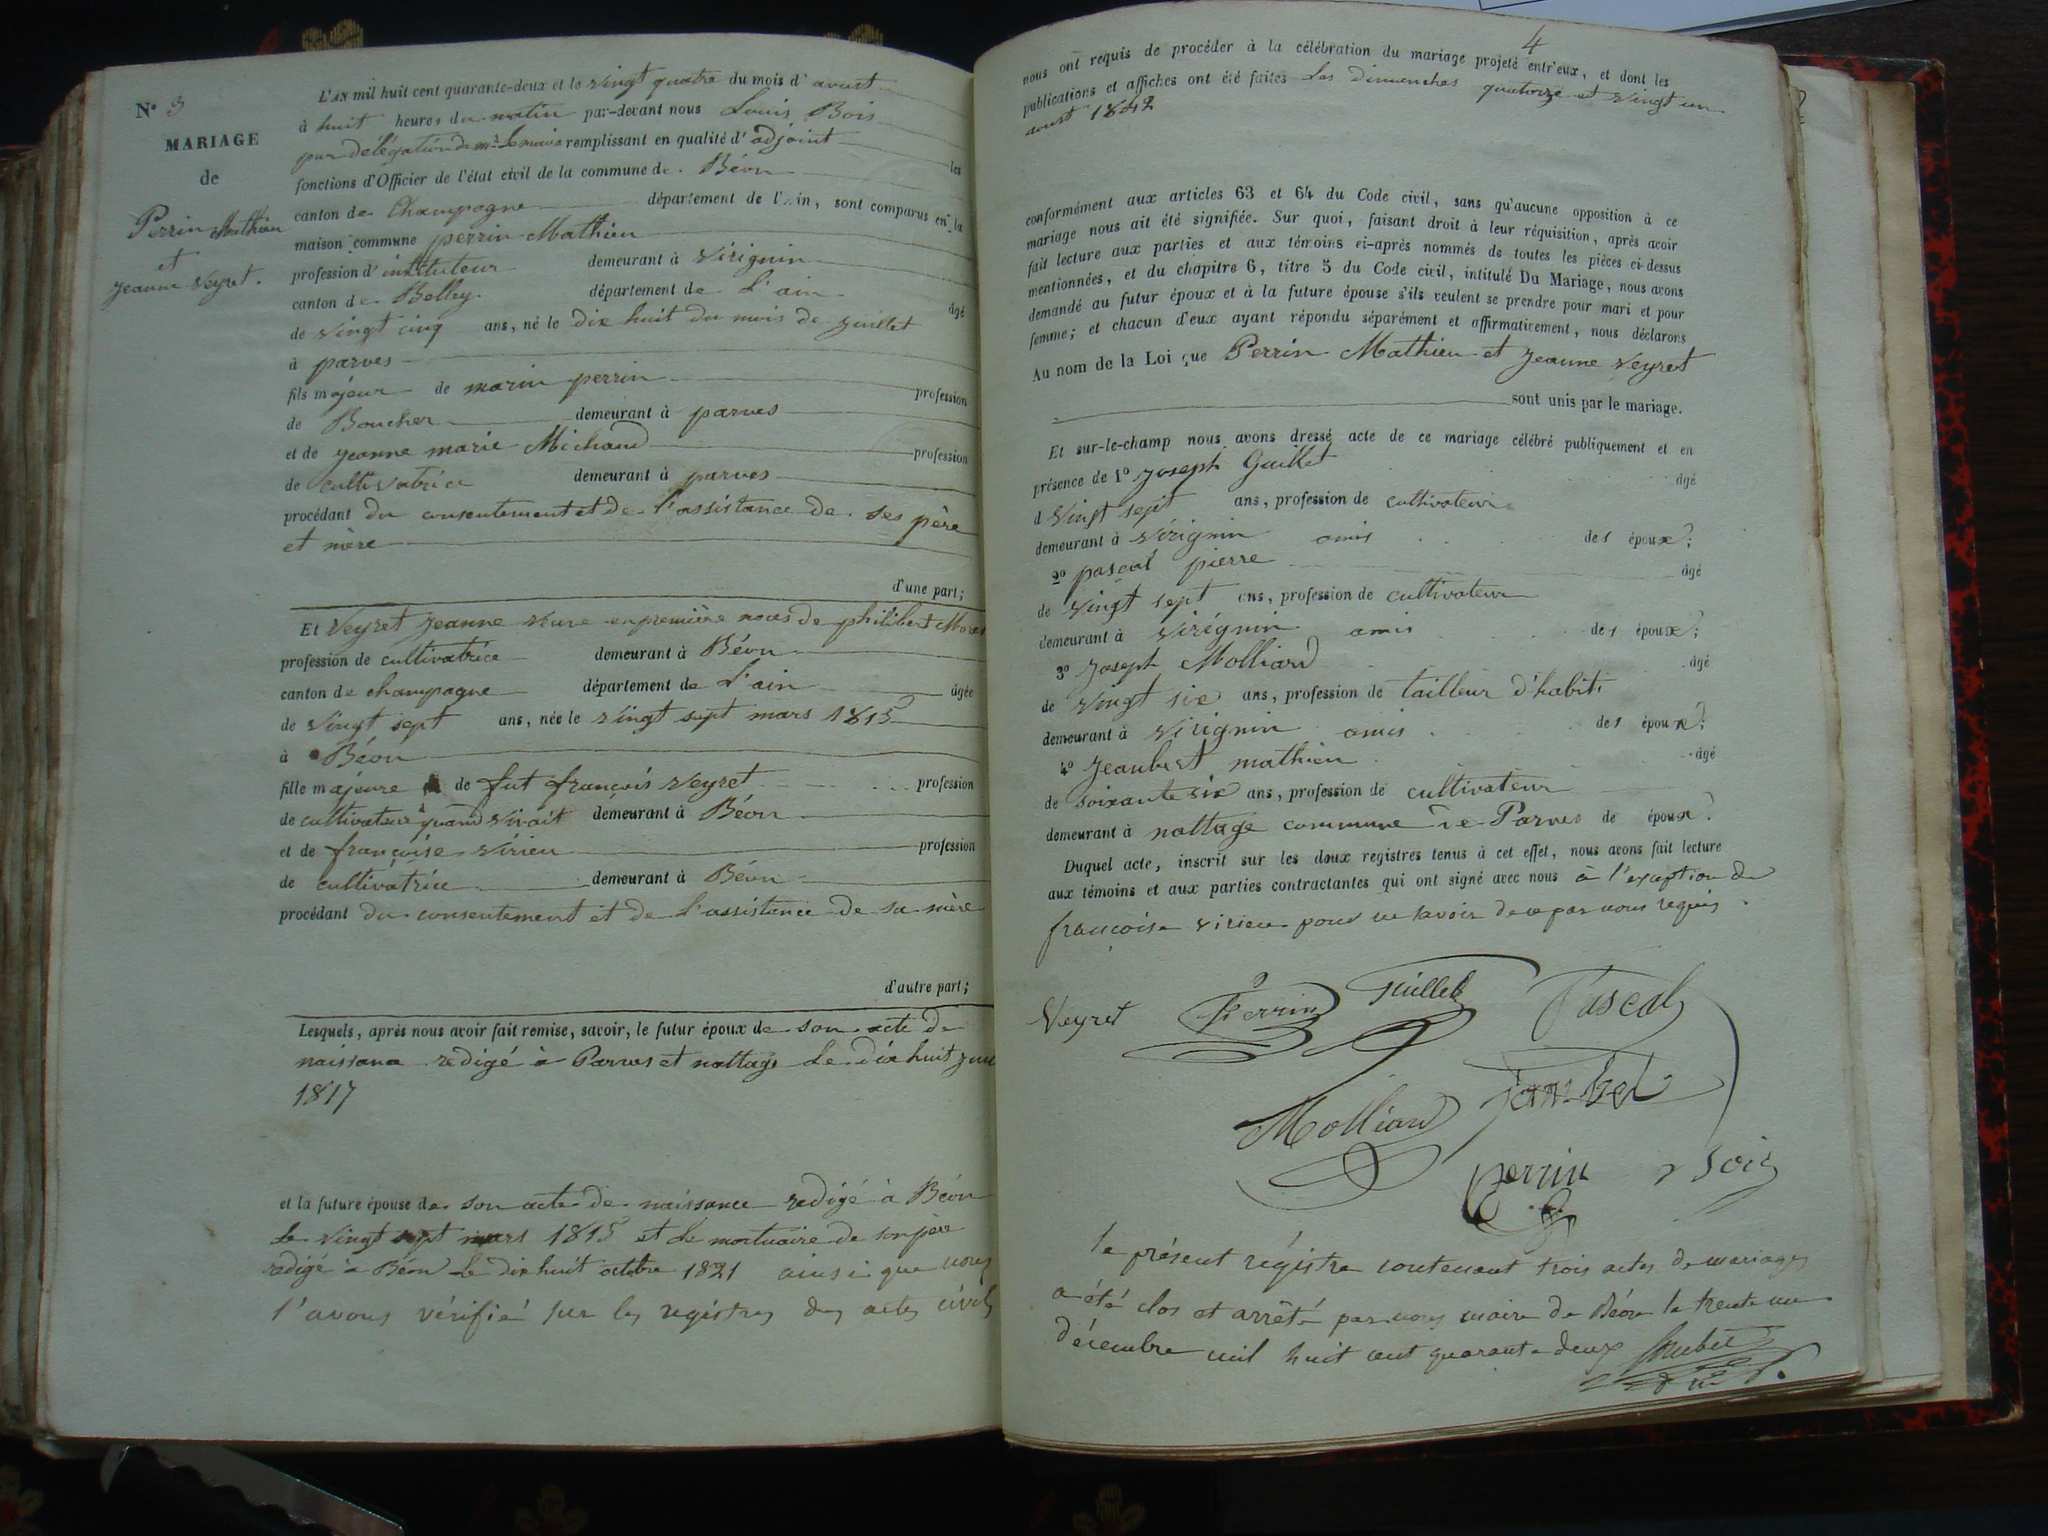 N° 3
MARIAGE
de
Perrin Mathieu
et
Jeanne Veyret.
L'AN mil huit cent quarante-deux et le vingt quatre du mois d'aoust
à huit heures du matin par-devant nous Louis Bois
par délégation de mr. le maire remplissant en qualité d'adjoint les
fonctions d'Officier de l'état civil de la commune de Béon
canton de Champagne département de l'Ain, sont comparus en la
maison commune perrin Mathieu
profession d'instituteur demeurant à Virignin
canton de Belley département de L'ain âgé
de vingt cinq ans, né le dix huit du mois de juillet
à parves
fils majeur de marin perrin profession
de Boucher demeurant à parves
et de jeanne marie Michaud profession
de cultivatrice demeurant à parves
procédant du consentement et de l'assistance de ses père
et mère
d'une part;
Et Veyret jeanne veuve en première noces de philibert
profession de cultivatrice demeurant à Béon
canton de champagne département de L'ain âgée
de vingt sept ans, née le vingt sept mars 1815
à Béon
fille majeure de fut françois Veyret profession
de cultivateur quand vivait demeurant à Béon
et de françoise virieu profession
de cultivatrice demeurant à Béon
procédant du consentement et de l'assistance de sa mère
d'autre part;
Lesquels, après nous avoir fait remise, savoir, le futur époux de son acte de
naissance redigé à Parves et nattage Le dix huit
1817
et la future épouse de son acte de naissance redigé à Béon
Le vingt sept mars 1815 et Le mortuaire de son père
redigé à Béon Le dix huit octobre 1821 ainsi que nous
l'avons vérifié sur les registres des actes civils
4
nous ont requis de procéder à la célébration du mariage projeté entr'eux, et dont les
publications et affiches ont été faites Les dimanches quatorze et vingt un
aoust 1842
conformément aux articles 63 et 64 du Code civil, sans qu'aucune opposition à ce
mariage nous ait été signifiée. Sur quoi, faisant droit à leur réquisition, après avoir
fait lecture aux parties et aux témoins ci-après nommés de toutes les pièces ci-dessus
mentionnées, et du chapitre 6, titre 5 du Code civil, intitulé Du Mariage, nous avons
demandé au futur époux et à la future épouse s'ils veulent se prendre pour mari et pour
femme; et chacun d'eux ayant répondu séparément et affirmativement, nous déclarons
Au nom de la Loi que Perrin Mathieu et jeanne Veyret
sont unis par le mariage.
Et sur-le-champ nous avons dressé acte de ce mariage célébré publiquement et en
présence de 1° Joseph Guillet âgé
d vingt sept ans, profession de cultivateur
demeurant à Virignin amis des époux;
2° pascal pierre âgé
de vingt sept ans, profession de cultivateur
demeurant à Virignin amis des époux;
3° Joseph Molliard âgé
de vingt six ans, profession de tailleur d'habits
demeurant à Virignin amis des époux;
4° Jeanbert mathieu âgé
de soixante six ans, profession de cultivateur
demeurant à nattage commune de Parves de époux.
Duquel acte, inscrit sur les doux registres tenus à cet effet, nous avons fait lecture
aux témoins et aux parties contractantes qui ont signé avec nous à l'exception de
françoise virieu pour ne savoir de ce par nous requis.
Veyret Perrin Guillet Pascal
Molliard
perrin Bois
le présent régistre contenant trois actes de mariages
a été clos et arrêté par nous maire de Béon le trente un
décembre mil huit cent quarante deux